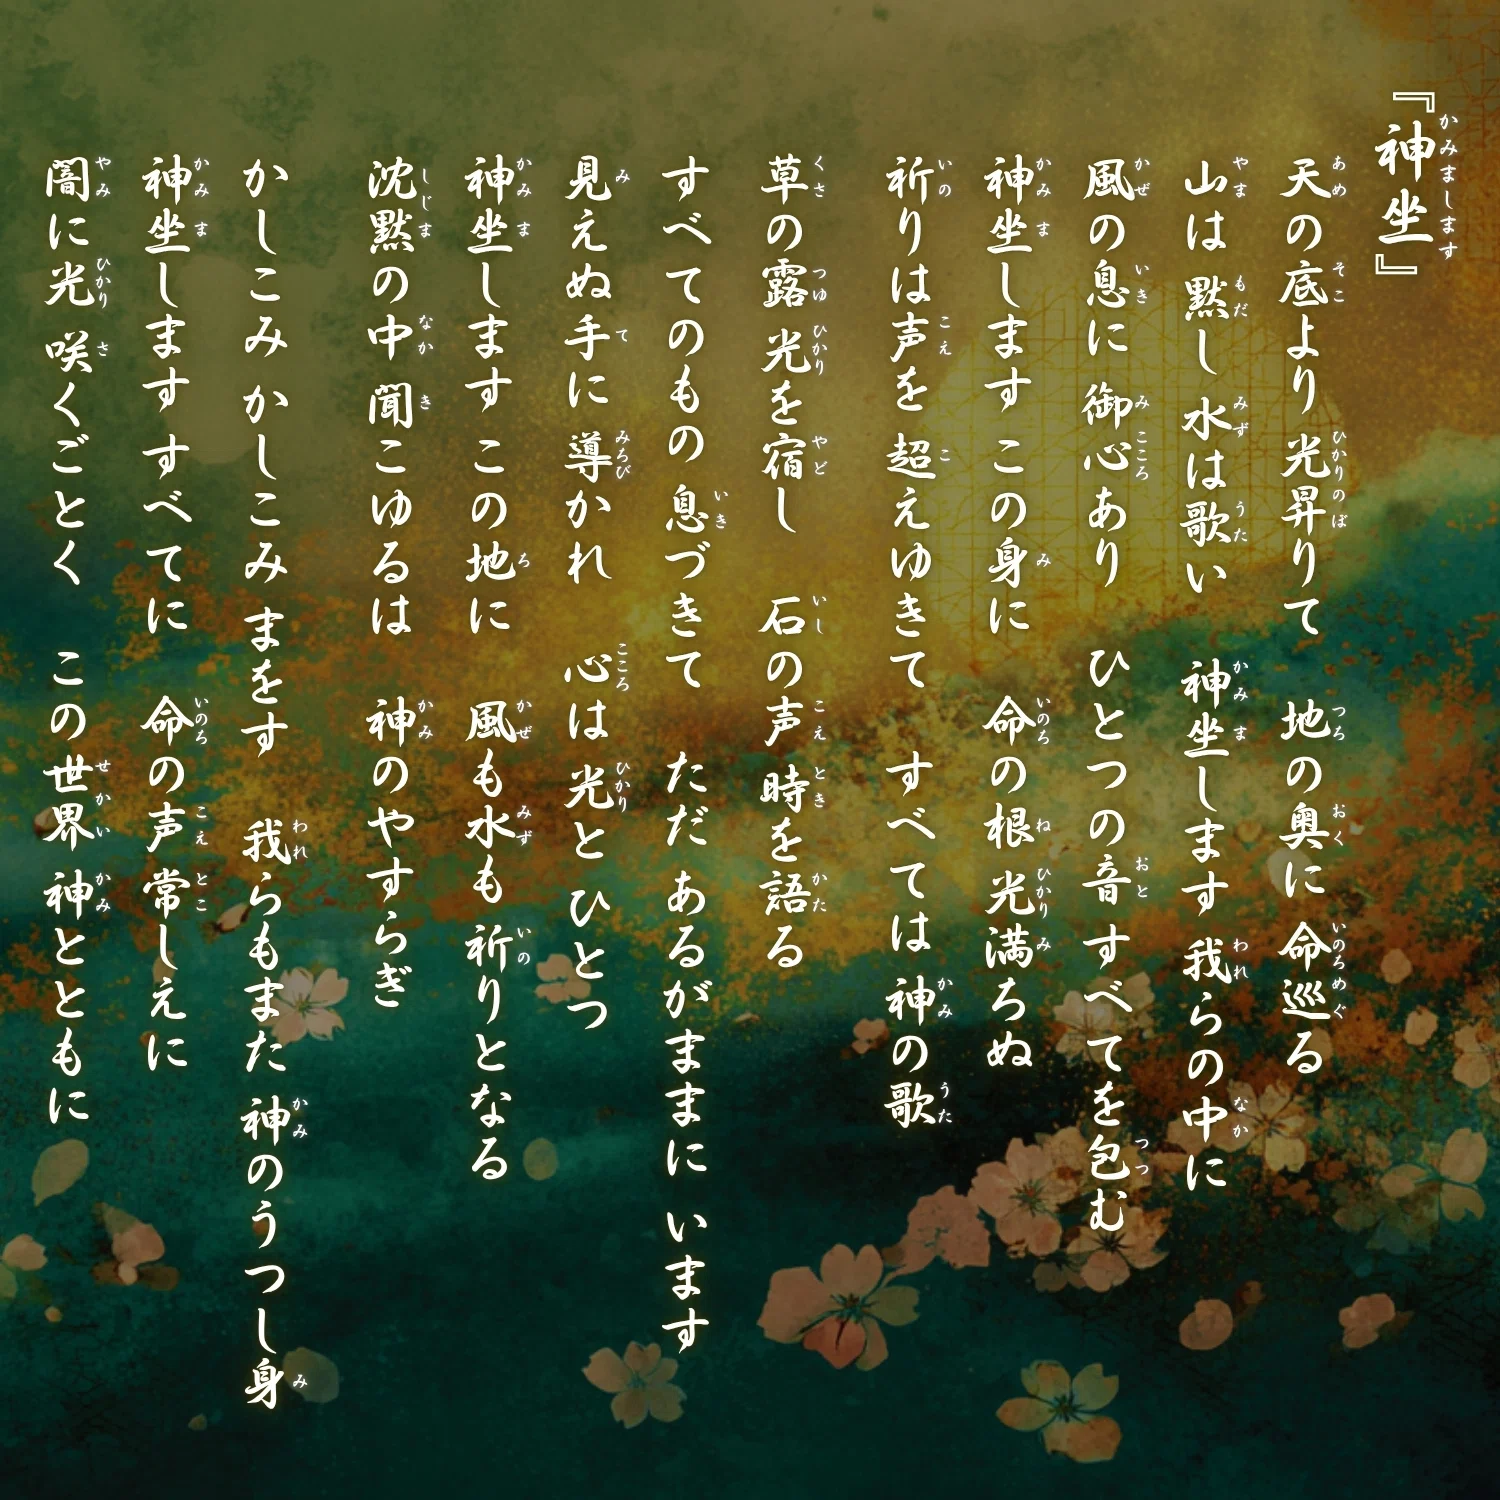 『神坐』
天の底より 光昇りて　地の奥に 命巡る
山は 黙し 水は歌い　神坐します 我らの中に
風の息に 御心あり　ひとつの音 すべてを包む
神坐します この身に　命の根 光満ちぬ
祈りは声を 超えゆきて　すべては 神の歌
草の露 光を宿し　石の声 時を語る
すべてのもの 息づきて　ただ あるがままに います
見えぬ手に 導かれ　心は 光と ひとつ
神坐します この地に　風も水も 祈りとなる
沈黙の中 聞こゆるは　神のやすらぎ
かしこみ かしこみ まをす　我らもまた 神のうつし身
神坐します すべてに　命の声 常しえに
闇に光 咲くごとく　この世界 神とともに